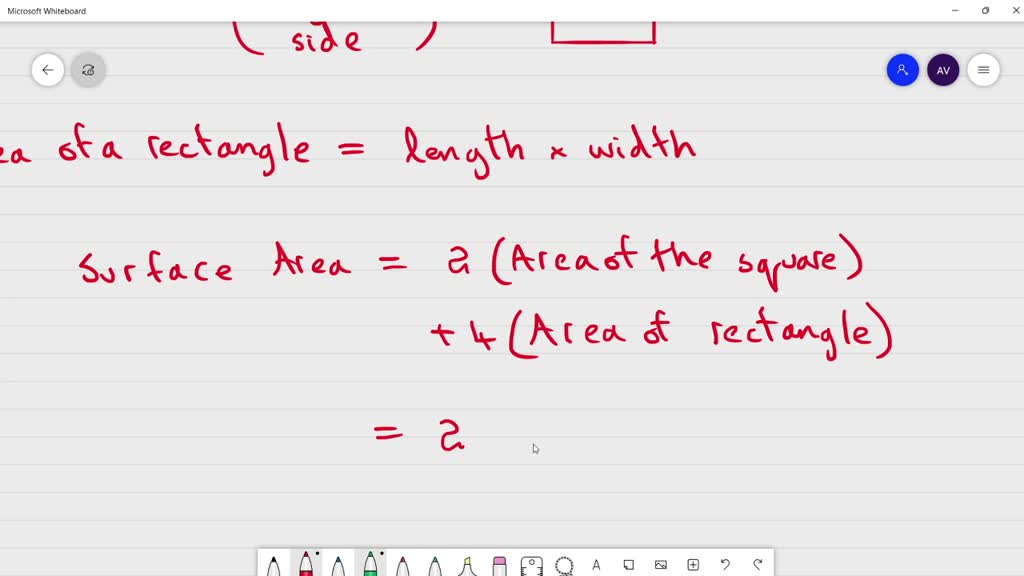 Microsoft Whiteboard
( side )
AV
ea of a rectangle = length × width
Surface Area = 2 (Area of the square)
+ 4 (Area of rectangle)
= 2
A